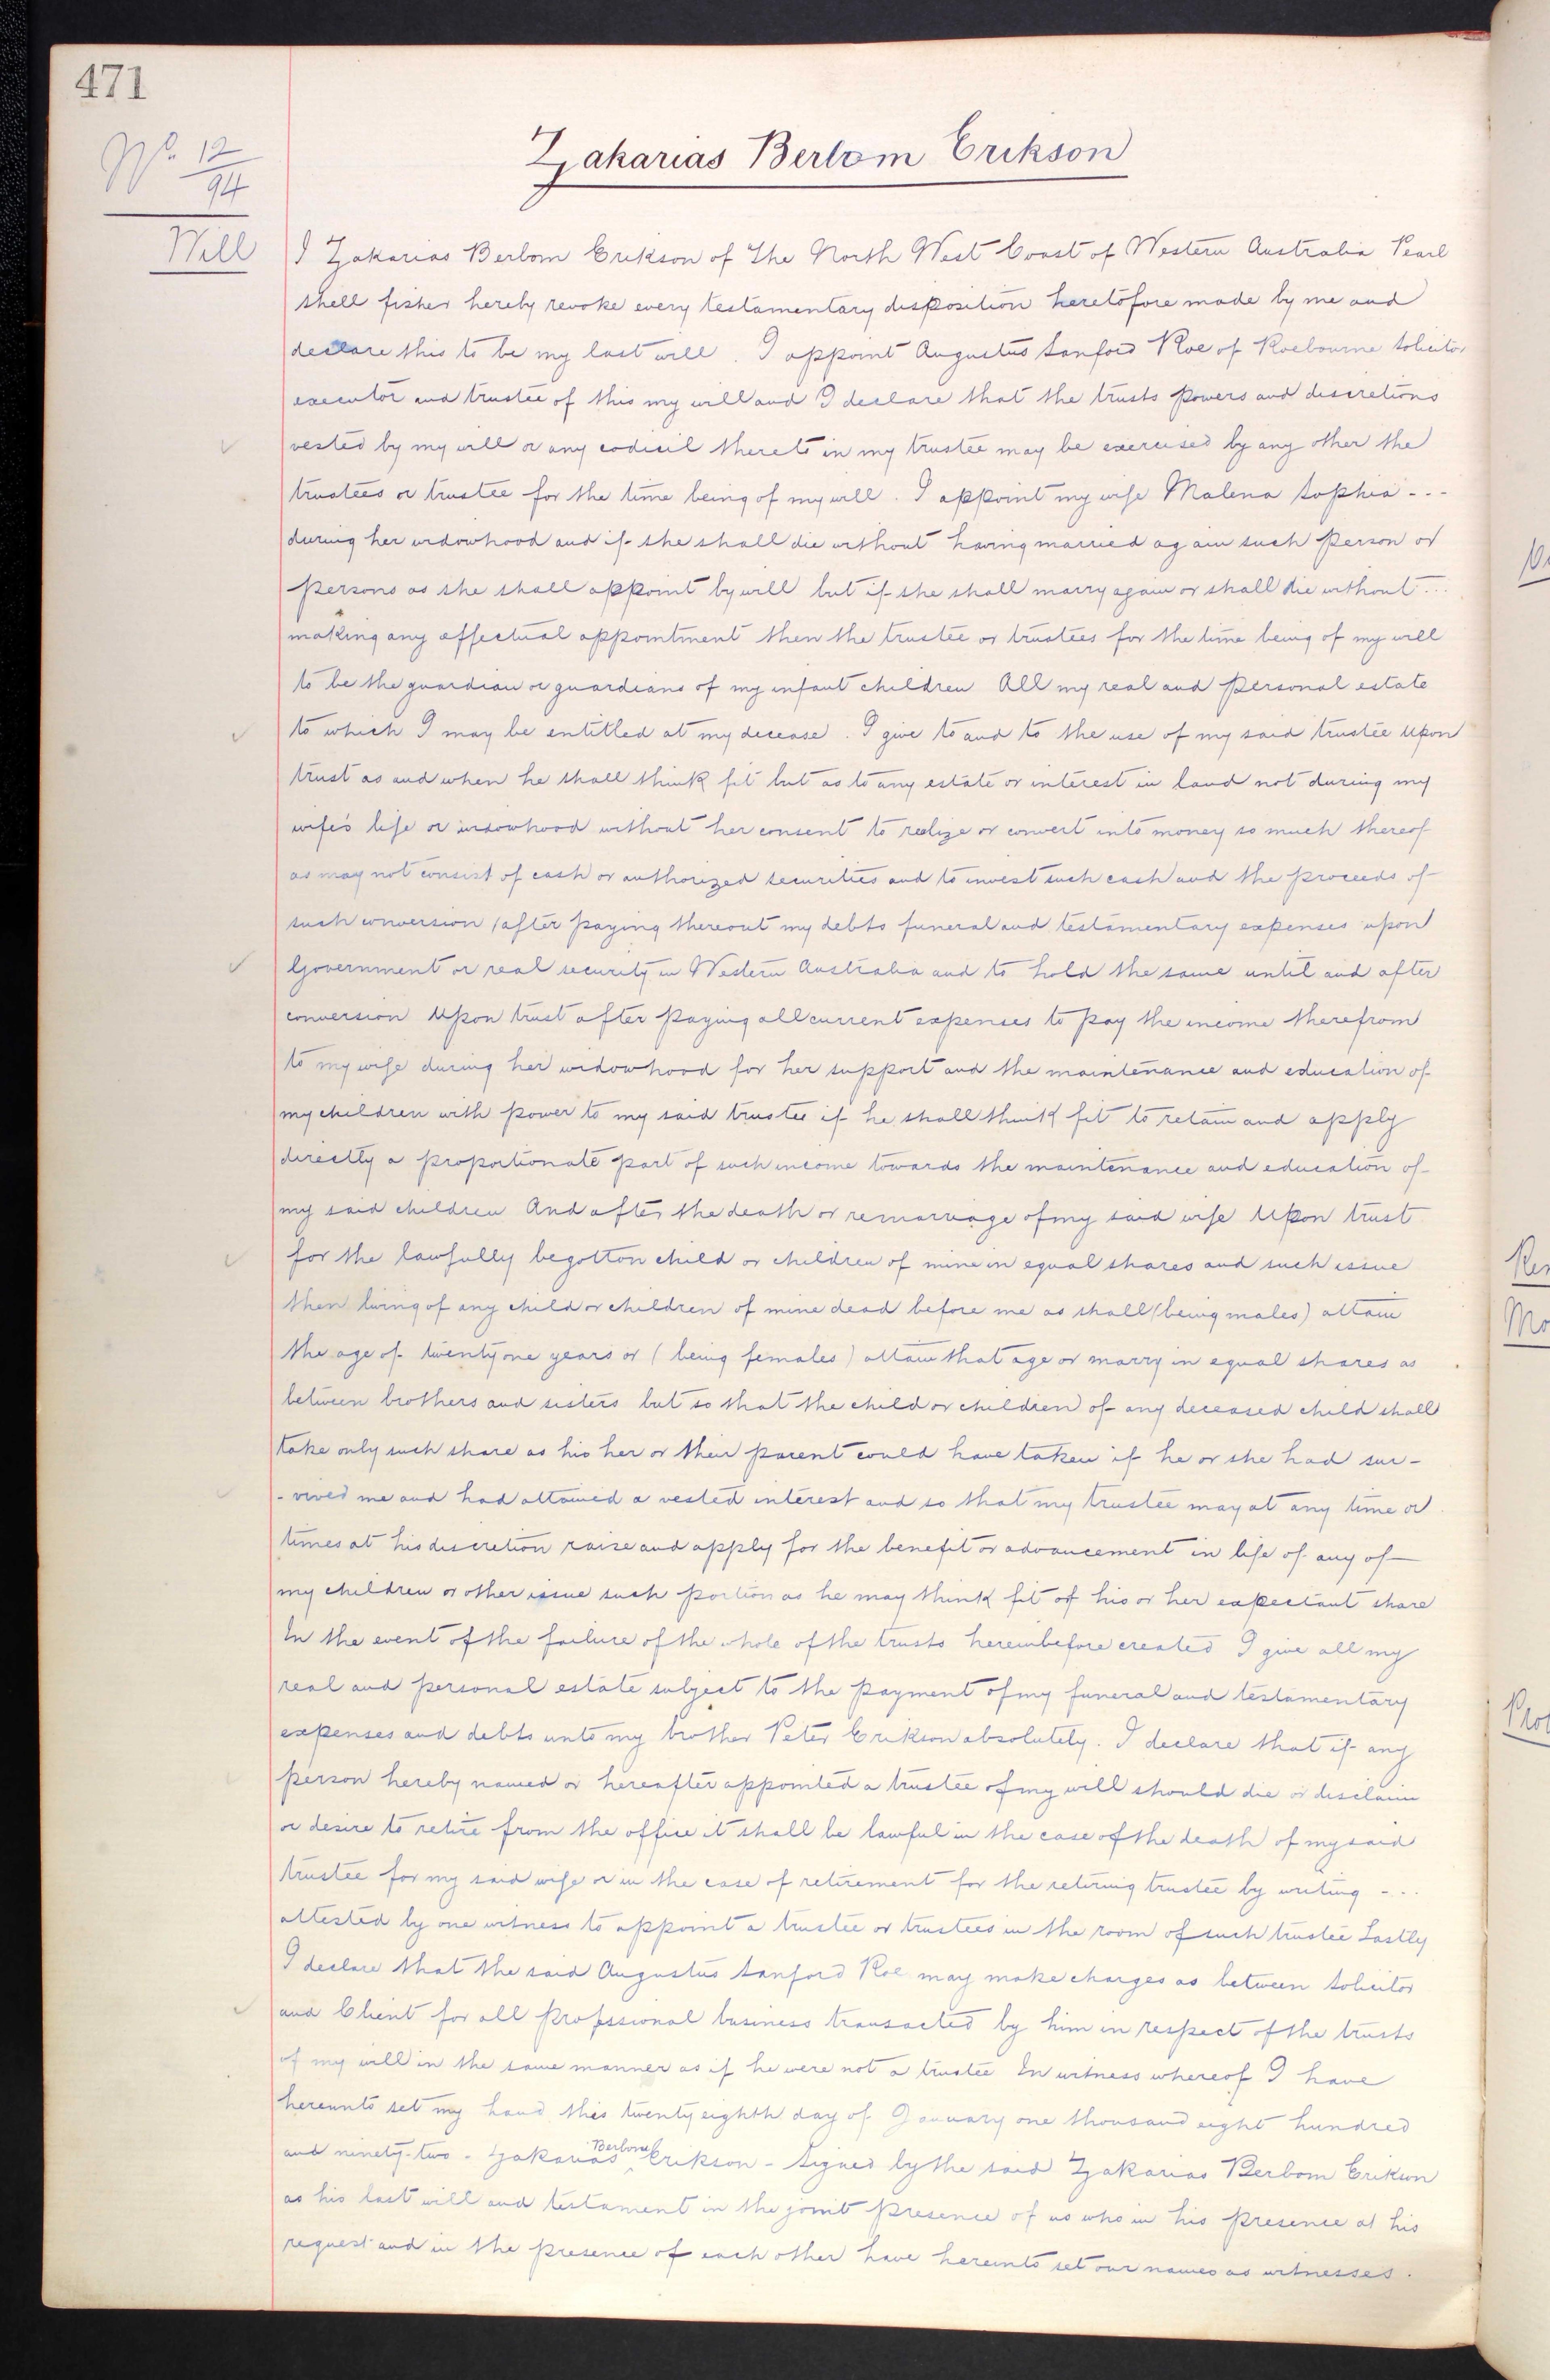 471
No. 12/94
Zakarias Berbom Erikson
Will
I Zakarias Berbom Erikson of The North West Coast of Western Australia Pearl
shell fisher hereby revoke every testamentary disposition heretofore made by me and
declare this to be my last will. I appoint Augustus Sanford Roe of Roebourne Solicitor
executor and trustee of this my will and I declare that the trusts powers and discretions
vested by my will or any codicil thereto in my trustee may be exercised by any other the
trustees or trustee for the time being of my will. I appoint my wife Malena Sophia ---
during her widowhood and if she shall die without having married again such person or
persons as she shall appoint by will but if she shall marry again or shall die without ...
making any effectual appointment then the trustee or trustees for the time being of my will
to be the guardian or guardians of my infant children All my real and personal estate
to which I may be entitled at my decease. I give to and to the use of my said trustee Upon
trust as and when he shall think fit but as to any estate or interest in land not during my
wife's life or widowhood without her consent to realize or convert into money so much thereof
as may not consist of cash or authorized securities and to invest such cash and the proceeds of
such conversion (after paying thereout my debts funeral and testamentary expenses upon
Government or real security in Western Australia and to hold the same until and after
conversion Upon trust after paying all current expenses to pay the income therefrom
to my wife during her widowhood for her support and the maintenance and education of
my children with power to my said trustee if he shall think fit to retain and apply
directly a proportionate part of such income towards the maintenance and education of
my said children And after the death or remarriage of my said wife Upon trust
for the lawfully begotton child or children of mine in equal shares and such issue
then living of any child or children of mine dead before me as shall (being males) attain
the age of twenty one years or (being females) attain that age or marry in equal shares as
between brothers and sisters but so that the child or children of any deceased child shall
take only such share as his her or their parent could have taken if he or she had sur-
-vived me and had attained a vested interest and so that my trustee may at any time or
times at his discretion raise and apply for the benefit or advancement in life of any of
my children or other issue such portion as he may think fit of his or her expectant share
In the event of the failure of the whole of the trusts hereinbefore created I give all my
real and personal estate subject to the payment of my funeral and testamentary
expenses and debts unto my brother Peter Erikson absolutely. I declare that if any
person hereby named or hereafter appointed a trustee of my will should die or disclaim
or desire to retire from the office it shall be lawful in the case of the death of my said
trustee for my said wife or in the case of retirement for the retiring trustee by writing - ..
attested by one witness to appoint a trustee or trustees in the room of such trustee Lastly
I declare that the said Augustus Sanford Roe may make charges as between Solicitor
and Client for all professional business transacted by him in respect of the trusts
of my will in the same manner as if he were not a trustee In witness whereof I have
hereunto set my hand this twenty eighth day of January one thousand eight hundred
and ninety-two - Zakarias Berbom Erikson - Signed by the said Zakarias Berbom Erikson
as his last will and testament in the joint presence of us who in his presence at his
request and in the presence of each other have hereunto set our names as witnesses.